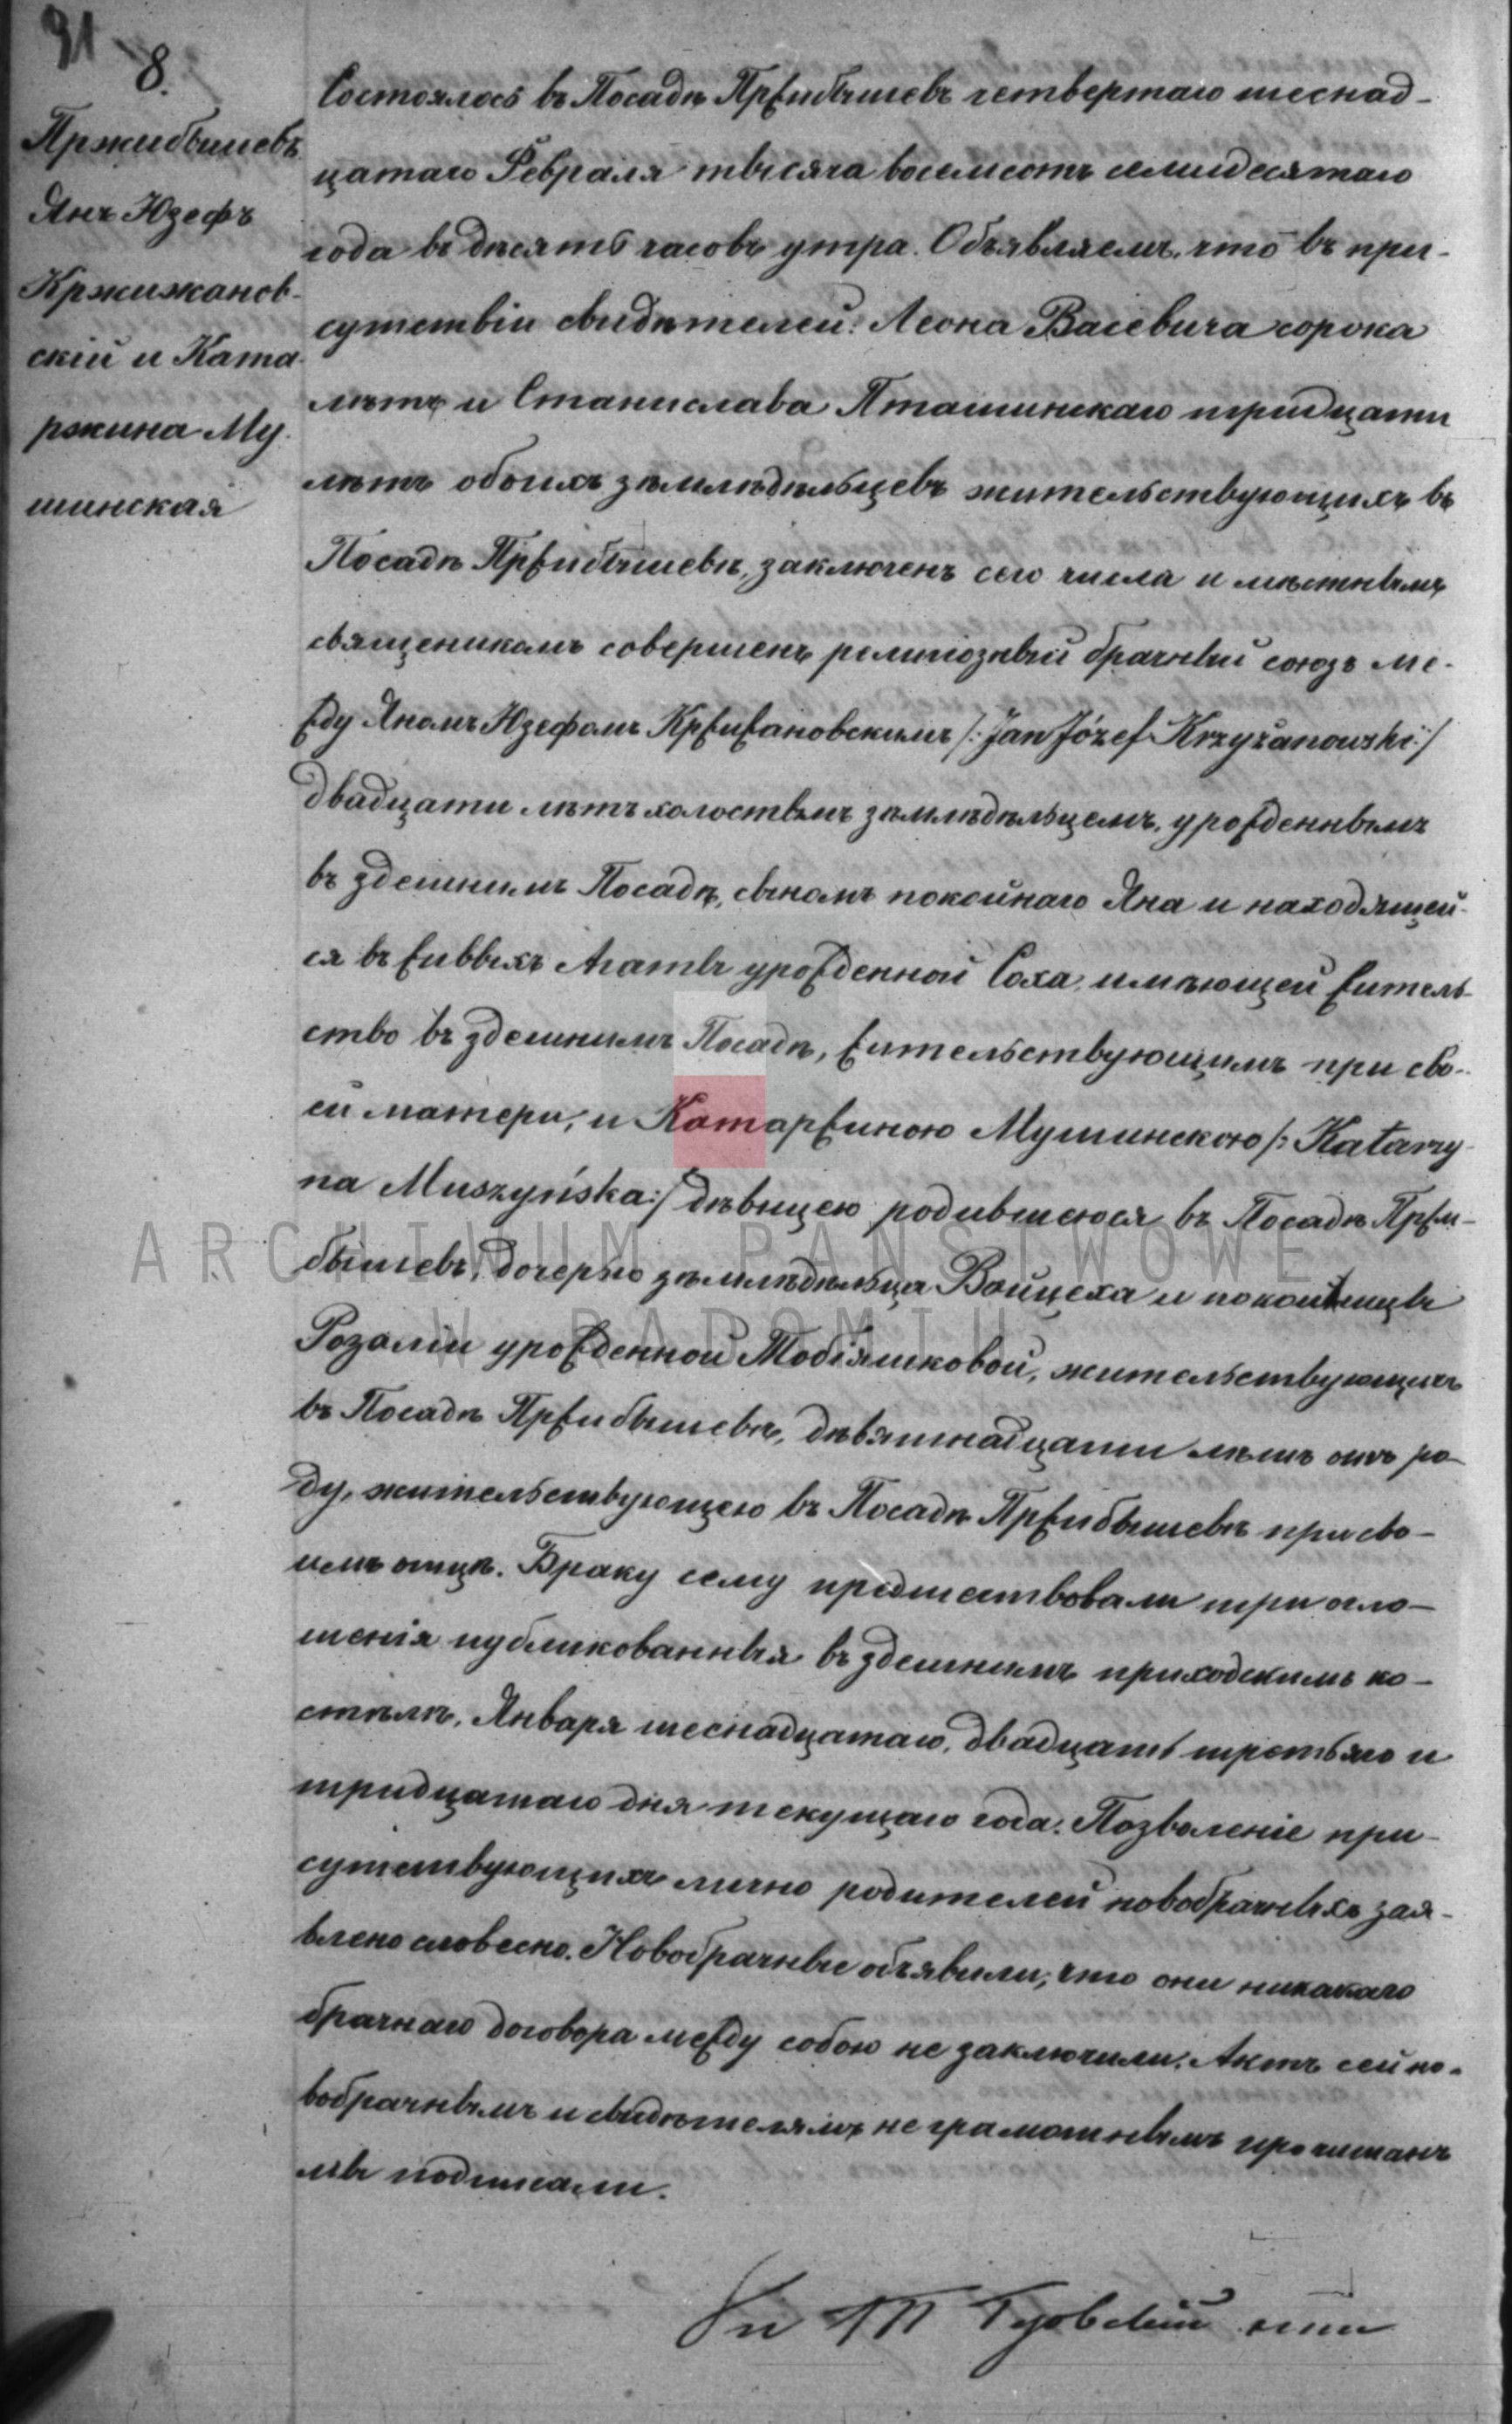 91
8.
Пржибышевъ
Янъ Юзефъ
Кржижанов-
скій и Ката-
ржина Му-
шинская
Состоялось въ Посадѣ Пржибышевъ четвертаго шеснад-
цатаго Февраля тысяча восемсотъ семидесятаго
года въ десять часовъ утра. Объявляемъ, что въ при-
сутствіи свидѣтелей: Леона Васевича сорока
лѣтъ и Станислава Пташинскаго тридцати
лѣтъ обоихъ зѣмлѣдѣльцевъ жительствующихъ въ
Посадѣ Пржибышевѣ, заключенъ сего числа и мѣстнымъ
священикомъ совершенъ религіозный брачный союзъ ме-
жду Яномъ Юзефомъ Кржижановскимъ /: Jan Józef Krzyżanowski :/
двадцати лѣтъ холостымъ зѣмлѣдѣльцемъ, урожденнымъ
въ здешнимъ Посадѣ, сыномъ покойнаго Яна и находящей-
ся въ живыхъ Агаты урожденной Соха, имѣющей житель-
ство въ здешнимъ Посадѣ, жительствующимъ при сво-
ей матери, и Катаржиною Мушинскою /: Katarzy-
na Muszyńska :/ дѣвицею родившеюся въ Посадѣ Пржи-
бышевъ, дочерью зѣмлѣдѣльца Войцеха и покойницы
Розаліи урожденной Тобіяшковой, жительствующихъ
въ Посадѣ Пржибышевѣ, дѣвятнадцати лѣтъ отъ ро-
ду, жительствующею въ Посадѣ Пржибышевѣ при сво-
имъ отцѣ. Браку сему предшествовали три огло-
шенія публикованныя въ здешнимъ приходскимъ ко-
стѣлѣ, Января шеснадцатаго, двадцать третьяго и
тридцатаго дня текущаго года. Позволеніе при-
сутствующихъ лично родителей новобрачныхъ зая-
влено словесно. Новобрачные объявили, что они никакаго
брачнаго договора между собою не заключили. Актъ сей но-
вобрачнымъ и свидѣтелямъ не грамотнымъ прочитанъ
мы подписали.
ARCHIWUM PAŃSTWOWE
W RADOMIU